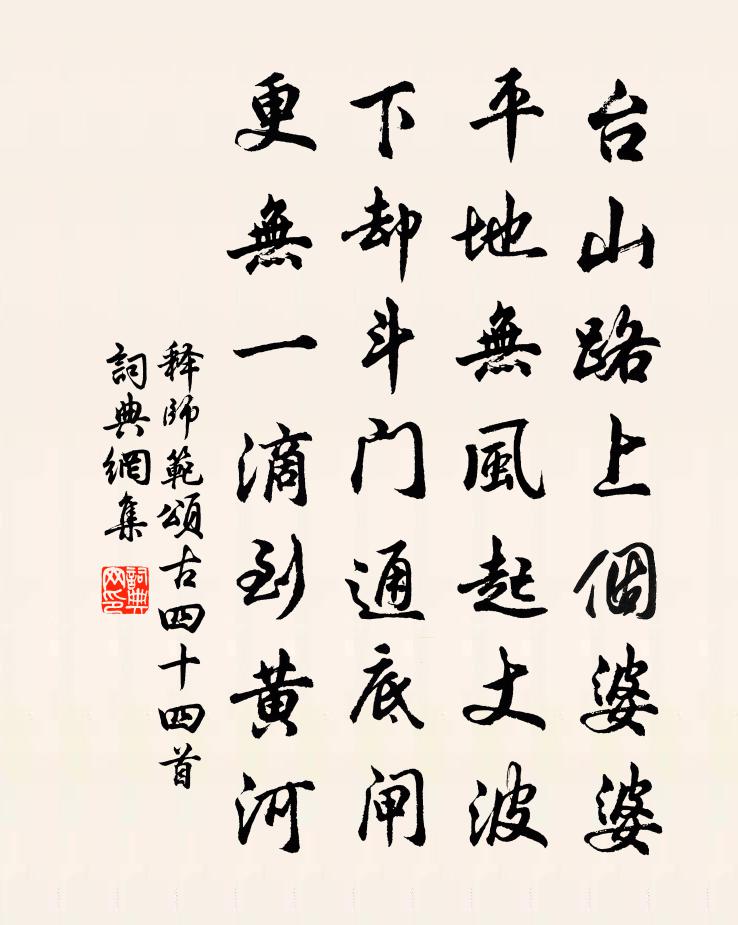 台山路上個婆婆
平地無風起丈波
下却斗門通底閘
更無一滴到黄河
释師範頌古四十四首
詞典網集
詞典网印